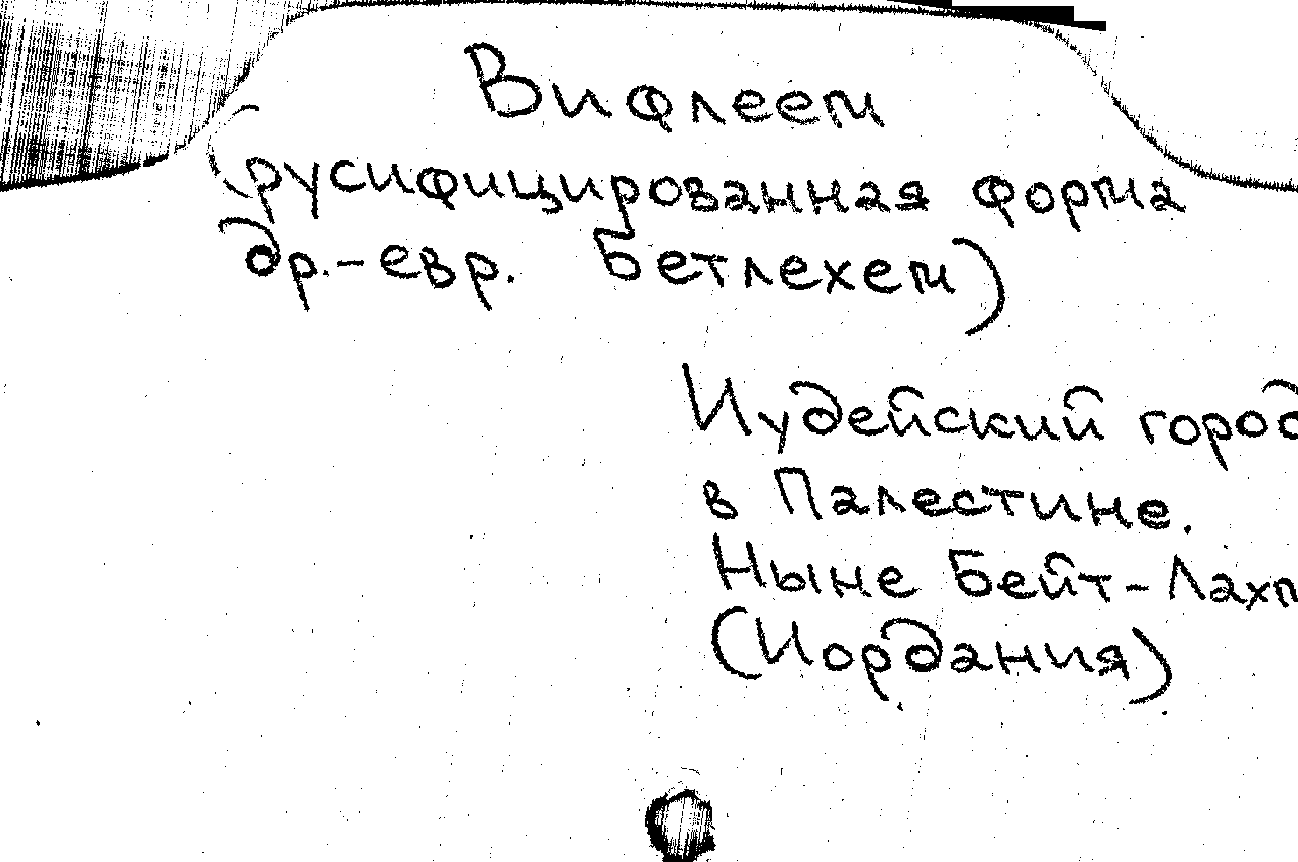 Вифлеем
(русифицированная форма
др.-евр. Бетлехем)
Иудейский город
в Палестине.
Ныне Бейт-Лахм
(Иордания)